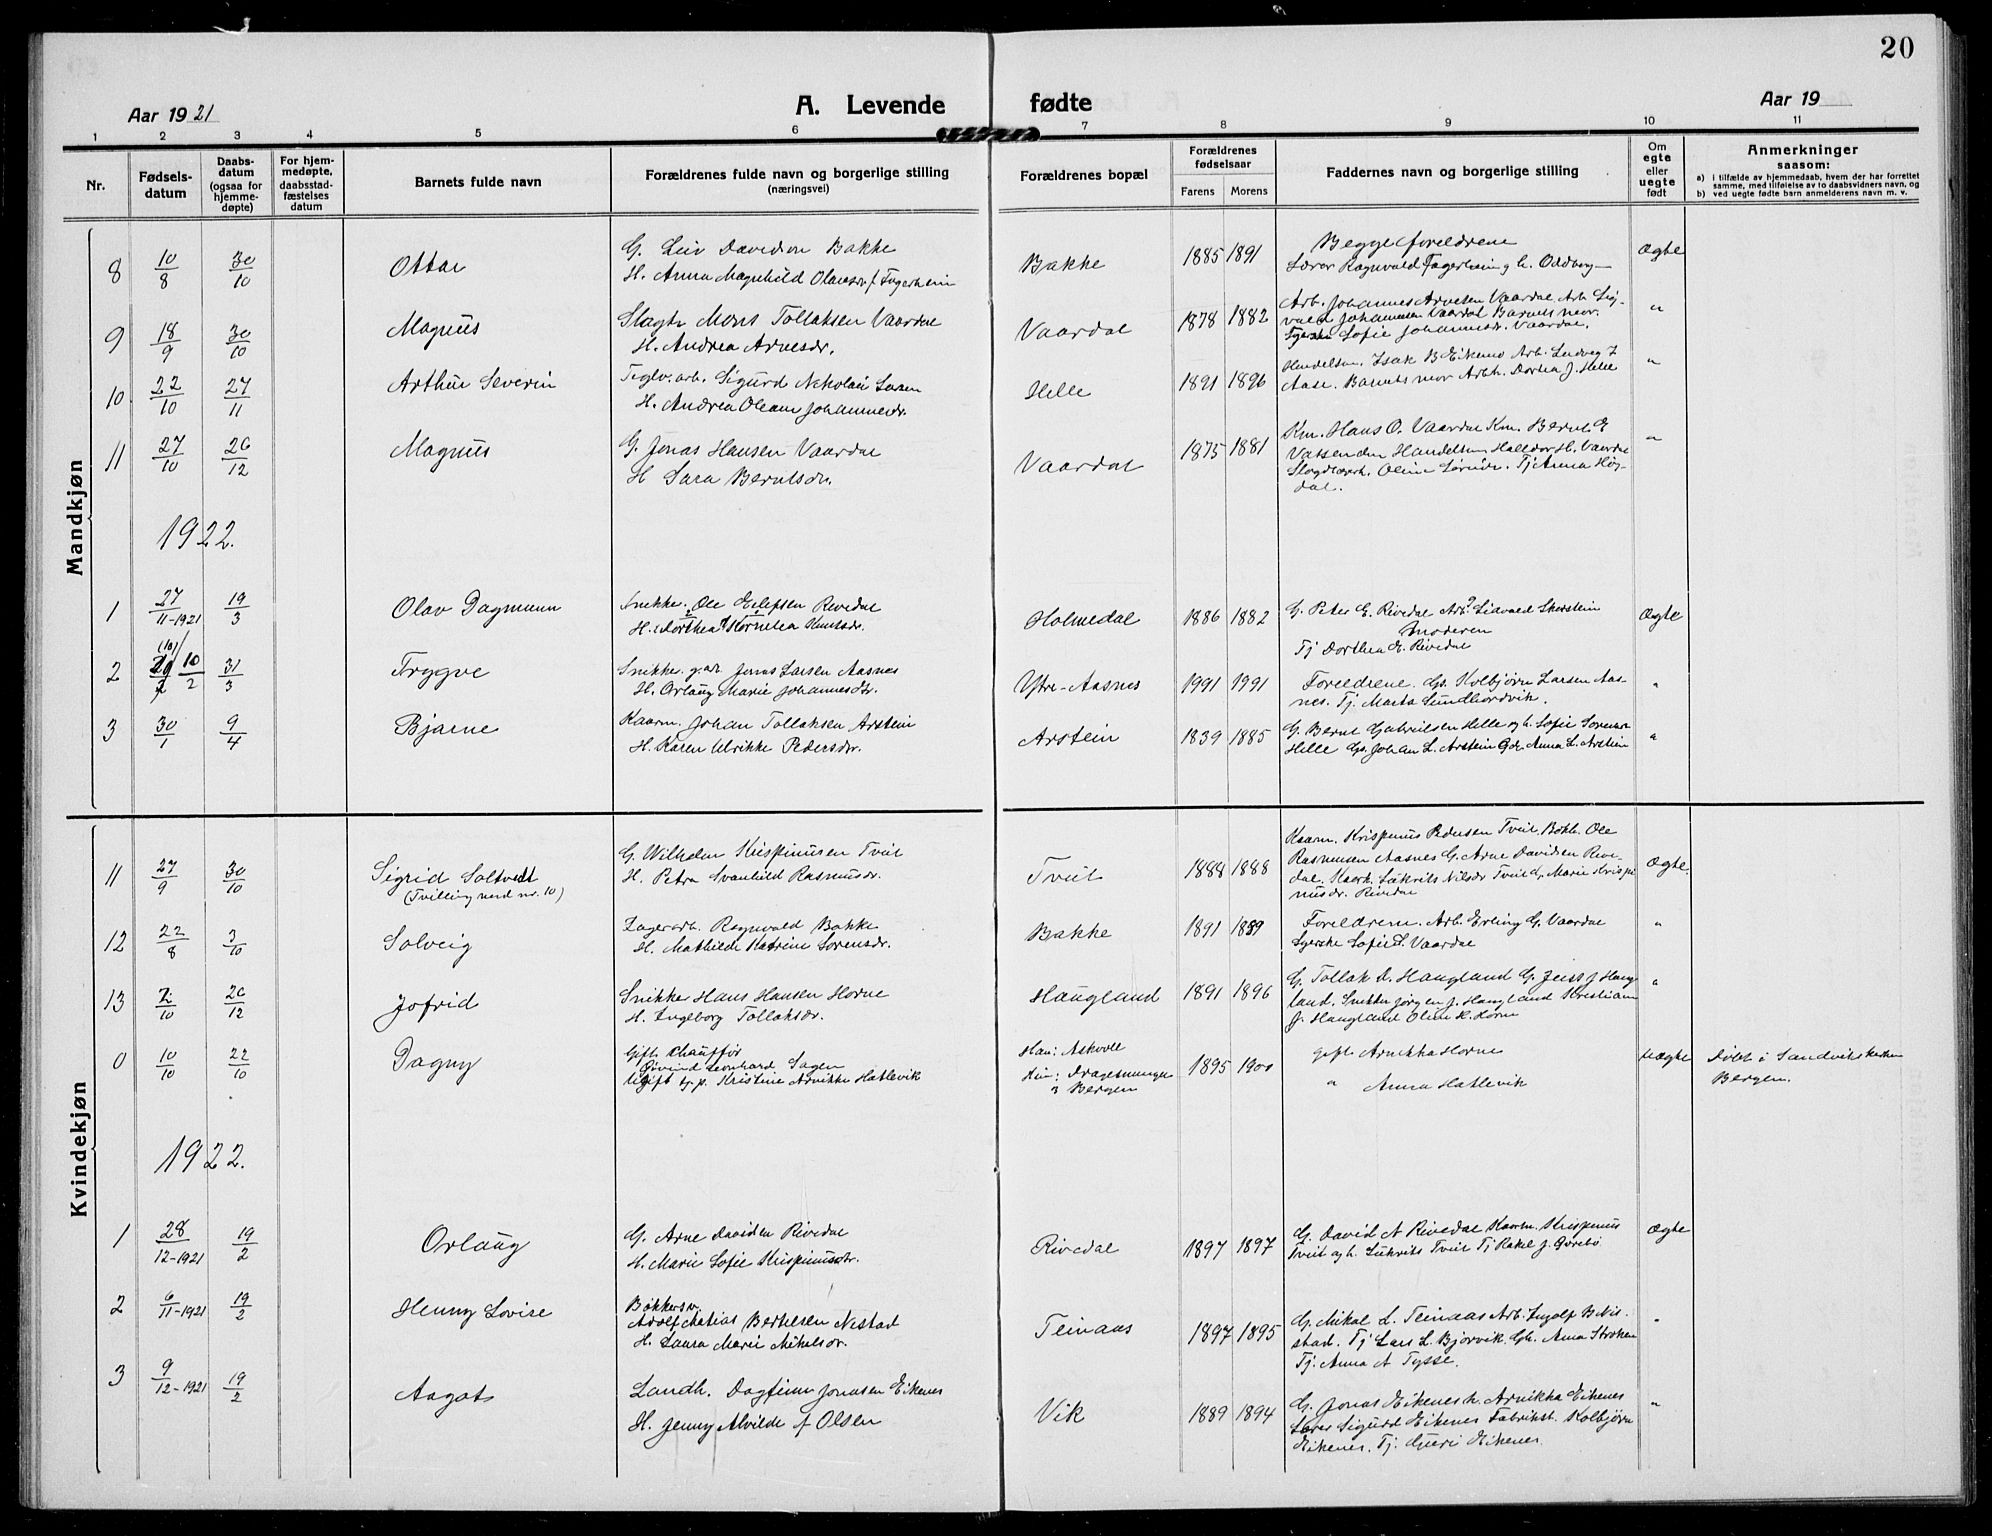 20
Aar 1921 A. Levende fødte Aar 19
1 2 3 4 5 6 7 8 9 10 11
Nr. Fødsels-datum Daabs-datum (ogsaa for hjemme-døpte) For hjem-medøpte, daabsstad-fæstelses datum Barnets fulde navn Forældrenes fulde navn og borgerlige stilling (næringsvei) Forældrenes bopæl Forældrenes fødselsaar Farens Morens Faddernes navn og borgerlige stilling Om egte eller uegte født Anmerkninger saasom:
a) i tilfælde av hjemmedaab, hvem der har forrettet samme, med tilføielse av to daabsvidners navn, og
b) ved uegte fødte barn anmelderens navn m. v.
Mandkjøn
8 10/8 30/10 Ottar G. Leiv Davidson Bakke Bakke 1885 1891 Begge foreldrene Ægte
H. Anna Magnhild Olavsdr f. Fagerheim Lærer Ragnvald Fagerheim og h. Oddborg
9 18/9 30/10 Magnus Slagt. Mons Tollaksen Vaardal Vaardal 1878 1882 Arb. Johannes Arnesen Vaardal Arb. Sig- "
H. Andrea Arnesdr. vald Johannesen Vaardal Barnets mor.
Sofie Johannesdr. Vaardal.
10 22/10 27/11 Arthur Severin Teglv. arb. Sigurd Nikolai Larsen Helle 1891 1896 Handelsm. Isak B Eikemo Arb. Ludvig I "
H. Andrea Oleane Johannesdr. Aase. Barnets mor Arb. Dortea J. Helle
11 27/10 26/12 Magnus G. Jonas Hansen Vaardal Vaardal 1875 1881 Km. Hans O. Vaardal Km. Bernt E "
H Sara Berntsdr. Vatsenden Handelsm Halldor H. Vaardal
Oline Tj Anna Høg-
dal.
1922.
1 27/11-1921 19/3 Olav Dagmunn Snikke. Ole Eilefsen Rivedal Holmedal 1886 1882 G. Peter E. Rivedal Arb. Sigvald Skorstein Ægte
H. Dorthea Kornelia Knutsdr. Moderen
Tj Dorthea E. Rivedal
2 (10) 10/2 31/3 Tryggve Snikke. gaar. Jonas Larsen Aasnes Ytre-Aasnes 1991 1991 Foreldrene. Gs. Kolbjørn Larsen Aas- "
H. Orlaug Marie Johannesdr. nes. Tj. Marta Sundhordvik.
3 30/1 9/4 Bjarne Kaarm. Johan Tollaksen Arstein Arstein 1839 1885 G. Bernt Gabrielsen Helle og h. Sofie Sorensdr "
H. Karen Ulrikke Pedersdr. Helle Gs. Johan L. Arstein Gdr. Anna L. Arstein
Kvindekjøn
11 27/9 30/10 Sigrid Soltvedt G. Wilhelm Krispinusen Tveit Tveit 1888 1888 Kaarm. Krispinus Pedersen Tveit. Bøkk. Ole Ægte.
(Tvilling med nr. 10) H. Petra Svanhild Rasmusdr. Rasmusen Aasnes G. Arne Davidsen Rive-
dal. Kaark. Lukrits Nilsdr Tveit G. Marie Krispi
nusdr. Rivedal
12 22/8 3/10 Solveig Lagerarb. Ragnvald Bakke Bakke 1891 1889 Foreldrene. Arb. Erling G. Vaardal "
H. Mathilde Katrine Sorensdr. Syerske Sofie S. Vaardal
13 2/10 26/12 Jofrid Snikke Hans Hansen Horne Haugland 1891 1896 G. Tollak D. Haugland G. Jens J Haug "
H. Ingeborg Tollaksdr. land. Snekker Jørgen J. Haugland Kristian
J. Haugland Oline H. Horne
0 10/10 22/10 Dagny Gift. Chauffør Han: Askvoll 1895 1900 gift Arnikka Horne Uægte Døbt i Sandvikskirken
Øivind Leonhard Sagen Hun: Dragesmuget " Anna Hatlevik Bergen.
Ugift tj. p. Kristine Arnikke Hatlevik 3 Bergen
1922.
1 28/12-1921 19/2 Orlaug G. Arne Davidsen Rivedal Rivedal 1897 1897 G. David A Rivedal Kaarm. Krispinus Ægte
H. Marie Sofie Krispinusdr. Tveit og h. Lukrits Tveit Tj Rakel J. Gjerebø
2 6/11-1921 19/2 Henny Lovise Bøkkersv. Teinaas 1897 1895 G. Mikal L. Teinaas Arb. Ingolf B Nis- "
Adolf Matias Bertelsen Nistad stad. Tj Lars L. Bjørvik. Gh. Anna
H. Laura Marie Mikelsdr. Tj. Anna A Tysse.
3 9/12-1921 19/2 Aagot Landh. Dagfinn Jonasen Eikenes Vik 1889 1894 G. Jonas Eikenes h. Arnikka Eikenes "
H. Jenny Alvilde f Olsen Lærer Sigurd Eikenes Fabrikst. Kolbjørn
Eikenes. Tj. Guri Eikenes.